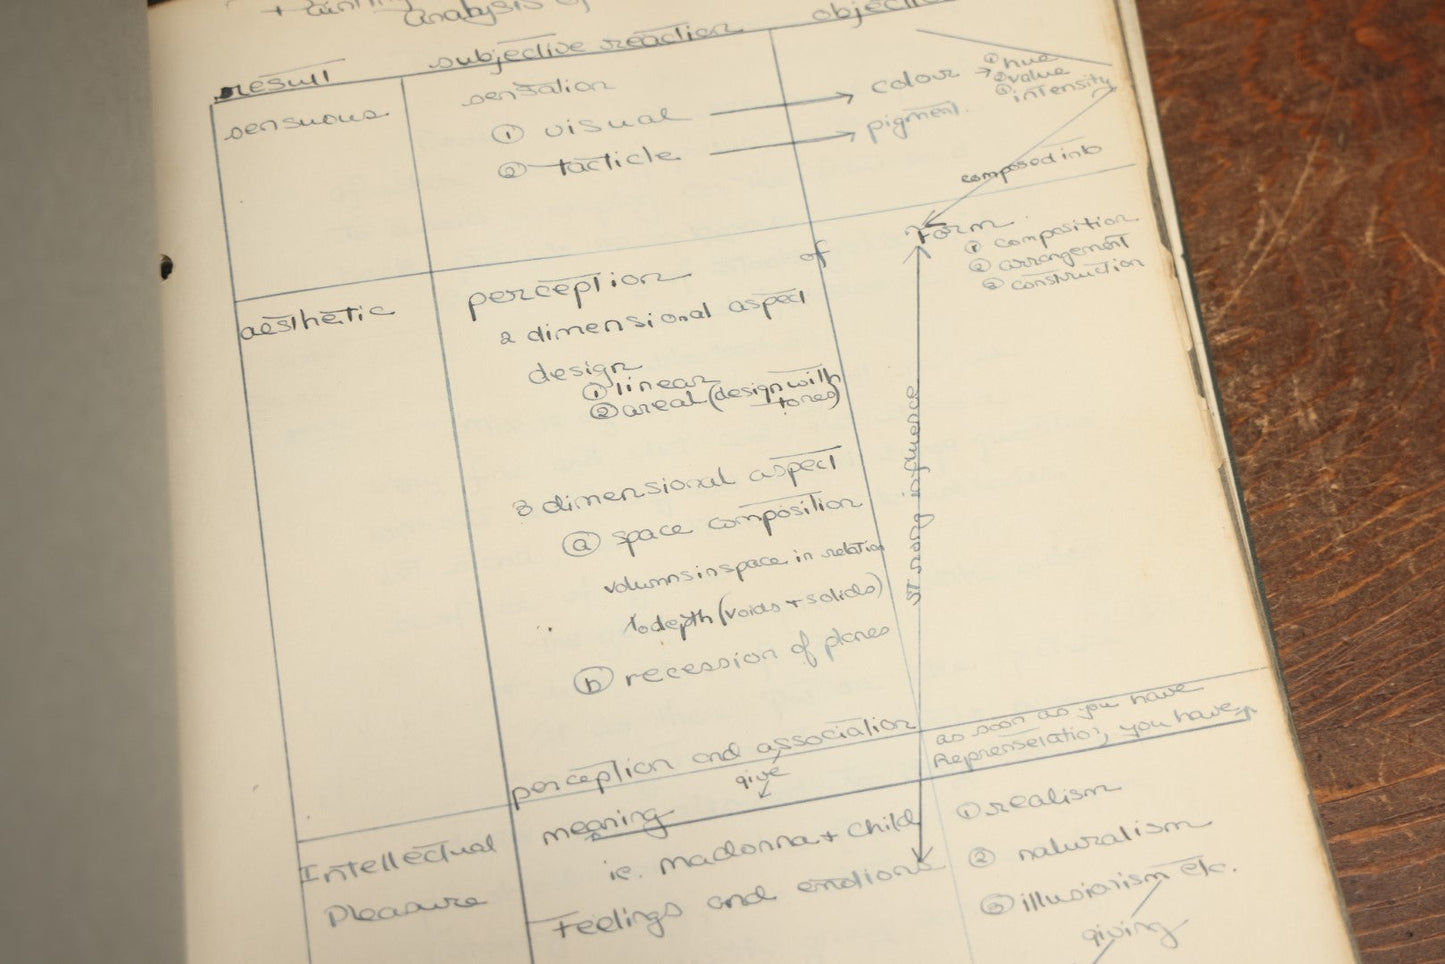 analysis of
result
subjective reaction
sensuous
sensation
① visual
② tacticle
colour
① hue
② value
③ intensity
pigment.
composed into
aesthetic
perception of
2 dimensional aspect
design
① linear
② areal (design with
tones)
3 dimensional aspect
ⓐ space composition
volumns in space in relation
to depth (voids + solids)
ⓑ recession of planes
form
① composition
② arrangement
③ construction
strong influence
perception and association
give
meaning
ie. madonna + child
Feelings and emotions
as soon as you have
Represetation, you have
Intellectual
Pleasure
① realism
② naturalism
③ illusionism etc.
giving